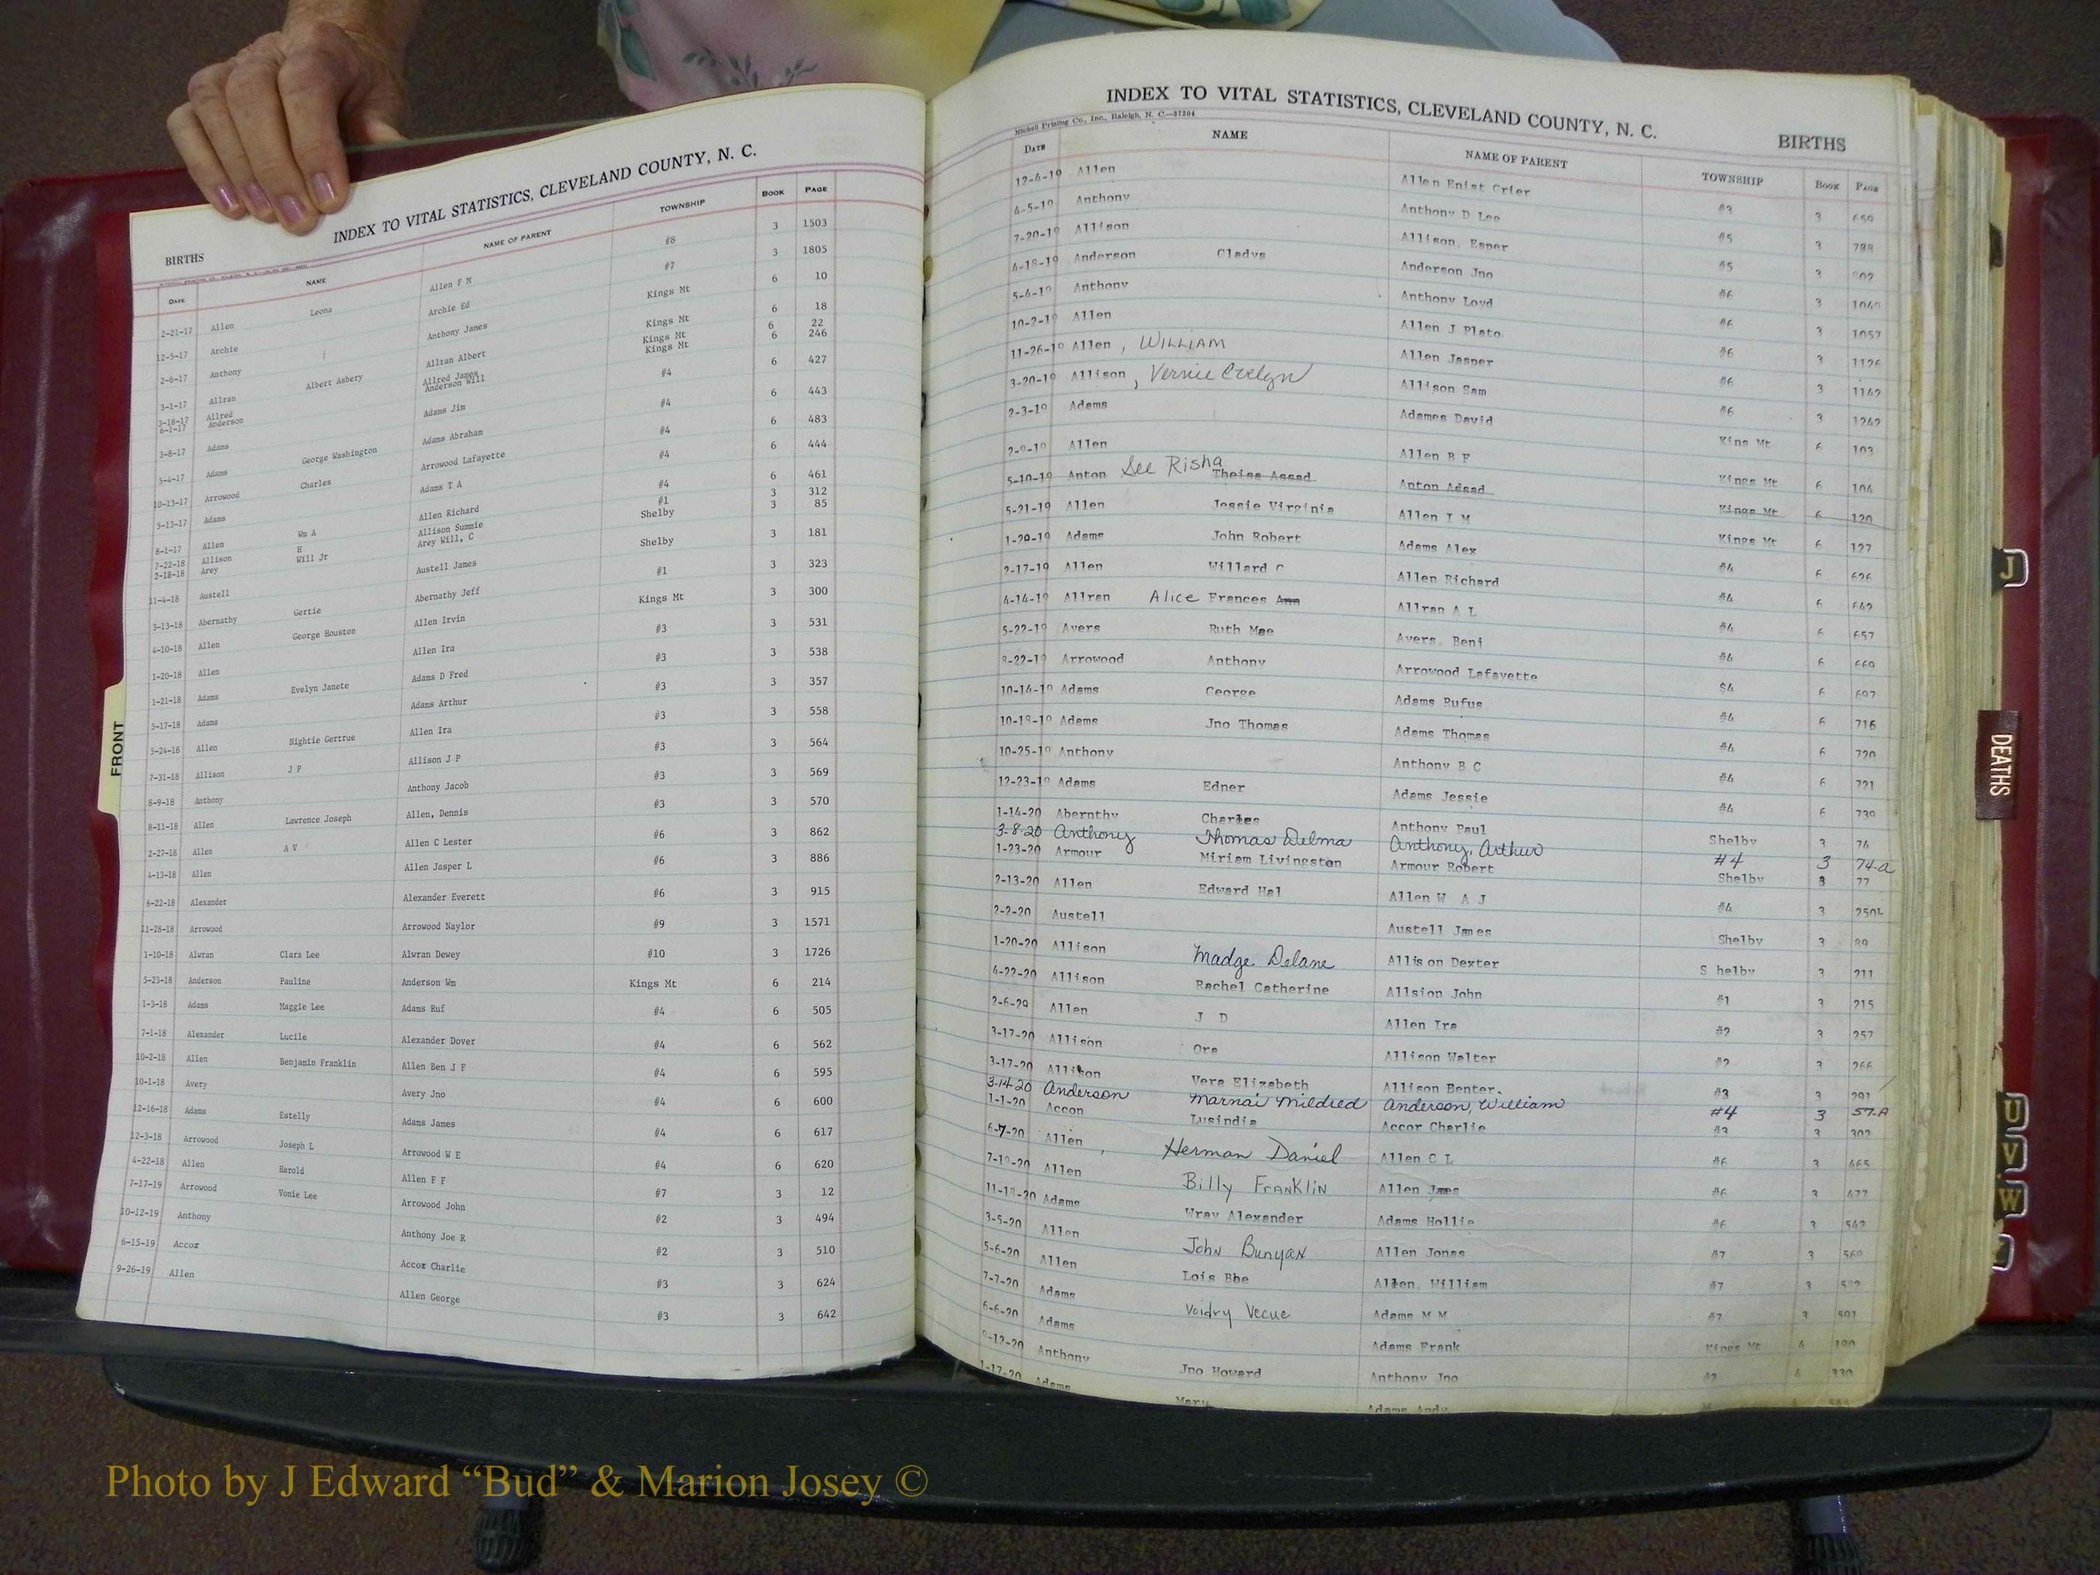 INDEX TO VITAL STATISTICS, CLEVELAND COUNTY, N. C.
BIRTHS
DATE NAME NAME OF PARENT TOWNSHIP BOOK PAGE
2-21-17 Allen Leona Allen F M #8 3 1503
12-5-17 Archie Archie Ed #7 3 1805
2-6-17 Anthony Anthony James Kings Mt 6 10
3-1-17 Allran Albert Asbery Allran Albert Kings Mt 6 18
3-18-17 Allred Allred James Kings Mt 6 22
6-1-17 Anderson Anderson Will Kings Mt 6 246
3-8-17 Adams Adams Jim #4 6 427
5-4-17 Adams George Washington Adams Abraham #4 6 443
10-13-17 Arrowood Charles Arrowood Lafayette #4 6 483
5-13-17 Adams Adams T A #4 6 444
8-1-17 Allen Wm A Allen Richard #4 6 461
7-22-18 Allison H Allison Summie #1 3 312
2-18-18 Arey Will Jr Arey Will, C Shelby 3 85
11-4-18 Austell Austell James Shelby 3 181
3-13-18 Abernathy Gertie Abernathy Jeff #1 3 323
4-10-18 Allen George Houston Allen Irvin Kings Mt 3 300
1-20-18 Allen Allen Ira #3 3 531
1-21-18 Adams Evelyn Janete Adams D Fred #3 3 538
5-17-18 Adams Adams Arthur #3 3 357
5-24-18 Allen Nightie Gertrue Allen Ira #3 3 558
7-31-18 Allison J P Allison J P #3 3 564
8-9-18 Anthony Anthony Jacob #3 3 569
8-11-18 Allen Lawrence Joseph Allen, Dennis #3 3 570
2-27-18 Allen A V Allen C Lester #6 3 862
4-13-18 Allen Allen Jasper L #6 3 886
6-22-18 Alexander Alexander Everett #6 3 915
11-28-18 Arrowood Arrowood Naylor #9 3 1571
1-10-18 Alwran Clara Lee Alwran Dewey #10 3 1726
5-23-18 Anderson Pauline Anderson Wm Kings Mt 6 214
1-3-18 Adams Maggie Lee Adams Ruf #4 6 505
7-1-18 Alexander Lucile Alexander Dover #4 6 562
10-2-18 Allen Benjamin Franklin Allen Ben J F #4 6 595
10-1-18 Avery Avery Jno #4 6 600
12-16-18 Adams Estelly Adams James #4 6 617
12-3-18 Arrowood Joseph L Arrowood W E #4 6 620
4-22-18 Allen Harold Allen F F #7 3 12
7-17-19 Arrowood Vonie Lee Arrowood John #2 3 494
10-12-19 Anthony Anthony Joe R #2 3 510
6-15-19 Accor Accor Charlie #3 3 624
9-26-19 Allen Allen George #3 3 642
FRONT
INDEX TO VITAL STATISTICS, CLEVELAND COUNTY, N. C.
Mitchell Printing Co., Inc., Raleigh, N. C.—37304
BIRTHS
DATE NAME NAME OF PARENT TOWNSHIP BOOK PAGE
12-4-19 Allen Allen Enist Crier #3 3 659
4-5-19 Anthony Anthony D Lee #5 3 788
7-20-19 Allison Allison, Esper #5 3 802
4-18-19 Anderson Gladys Anderson Jno #6 3 1049
5-4-19 Anthony Anthony Loyd #6 3 1057
10-2-19 Allen Allen J Plato #6 3 1126
11-26-19 Allen, WILLIAM Allen Jasper #6 3 1142
3-20-19 Allison, Vernie Evelyn Allison Sam #6 3 1242
2-3-19 Adams Adames David King Mt 6 103
2-9-19 Allen Allen B F Kings Mt 6 104
5-10-19 Anton See Risha Theiss Assad Anton Assad Kings Mt 6 120
5-21-19 Allen Jessie Virginia Allen I M Kings Mt 6 127
1-29-19 Adams John Robert Adams Alex #4 6 626
2-17-19 Allen Willard C Allen Richard #4 6 642
4-14-19 Allran Alice Frances Ann Allran A L #4 6 657
5-22-19 Ayers Ruth Mae Ayers, Benj #4 6 669
8-22-19 Arrowood Anthony Arrowood Lafayette $4 6 697
10-14-19 Adams George Adams Rufus #4 6 716
10-18-19 Adams Jno Thomas Adams Thomas #4 6 720
10-25-19 Anthony Anthony B C #4 6 721
12-23-19 Adams Edner Adams Jessie #4 6 739
1-14-20 Abernthy Charles Anthony Paul Shelby 3 74
3-8-20 Anthony Thomas Delma Anthony, Arthur #4 3 74-a
1-23-20 Armour Miriam Livingston Armour Robert Shelby 3 77
2-13-20 Allen Edward Hal Allen W A J #4 3 250½
2-2-20 Austell Austell James Shelby 3 89
1-20-20 Allison Madge Delane Allison Dexter S helby 3 211
4-22-20 Allison Rachel Catherine Allsion John #1 3 215
2-6-20 Allen J D Allen Ira #2 3 257
3-17-20 Allison Ora Allison Walter #2 3 266
3-17-20 Allison Vera Elizabeth Allison Benter. #3 3 291
3-14-20 Anderson Marnai Mildred Anderson, William #4 3 57-A
1-1-20 Accon Lusindia Accor Charlie #3 3 302
6-7-20 Allen Herman Daniel Allen C L #6 3 465
7-19-20 Allen Billy FRANKLIN Allen James #6 3 477
11-18-20 Adams Wray Alexander Adams Hollie #6 3 542
3-5-20 Allen John Bunyan Allen Jonas #7 3 569
5-6-20 Allen Lois Bbe Allen, William #7 3 582
7-7-20 Adams Voidry Vecue Adams M M #7 3 591
6-6-20 Adams Adams Frank Kings Mt 4 190
9-12-20 Anthony Jno Howard Anthony Jno #2 4 330
1-17-20 Adams Mary Adams Andy
J
DEATHS
U
V
W
Photo by J Edward “Bud” & Marion Josey ©